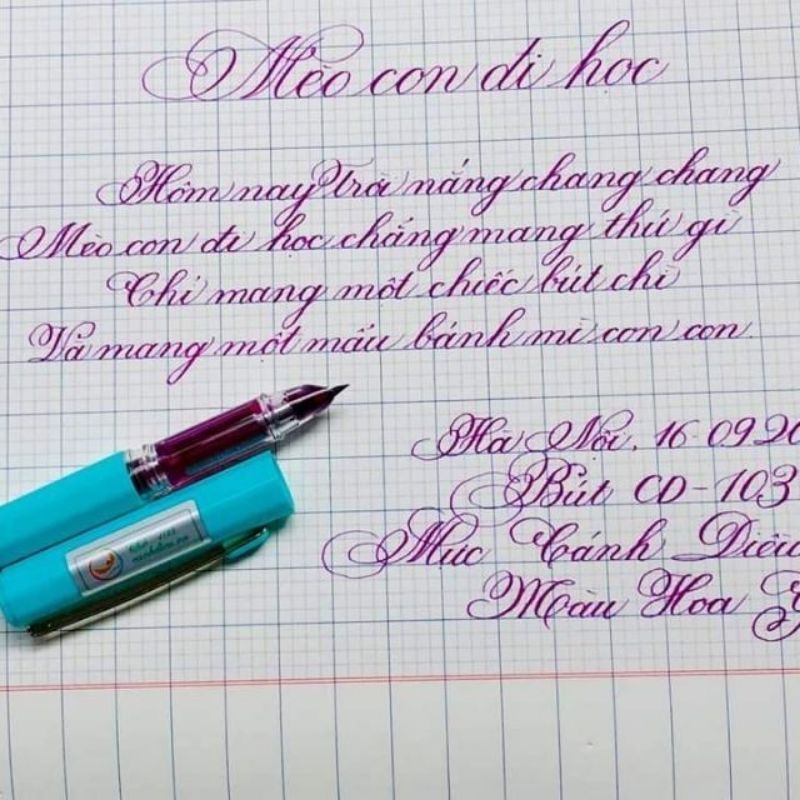 Mèo con đi học
Hôm nay Trời nắng chang chang
Mèo con đi học chẳng mang thứ gì
Chỉ mang một chiếc bút chì
Và mang một mẩu bánh mì con con
Hà Nội, 16.09.20
Bút CD-103
Mực Cánh Diều
Màu Hoa